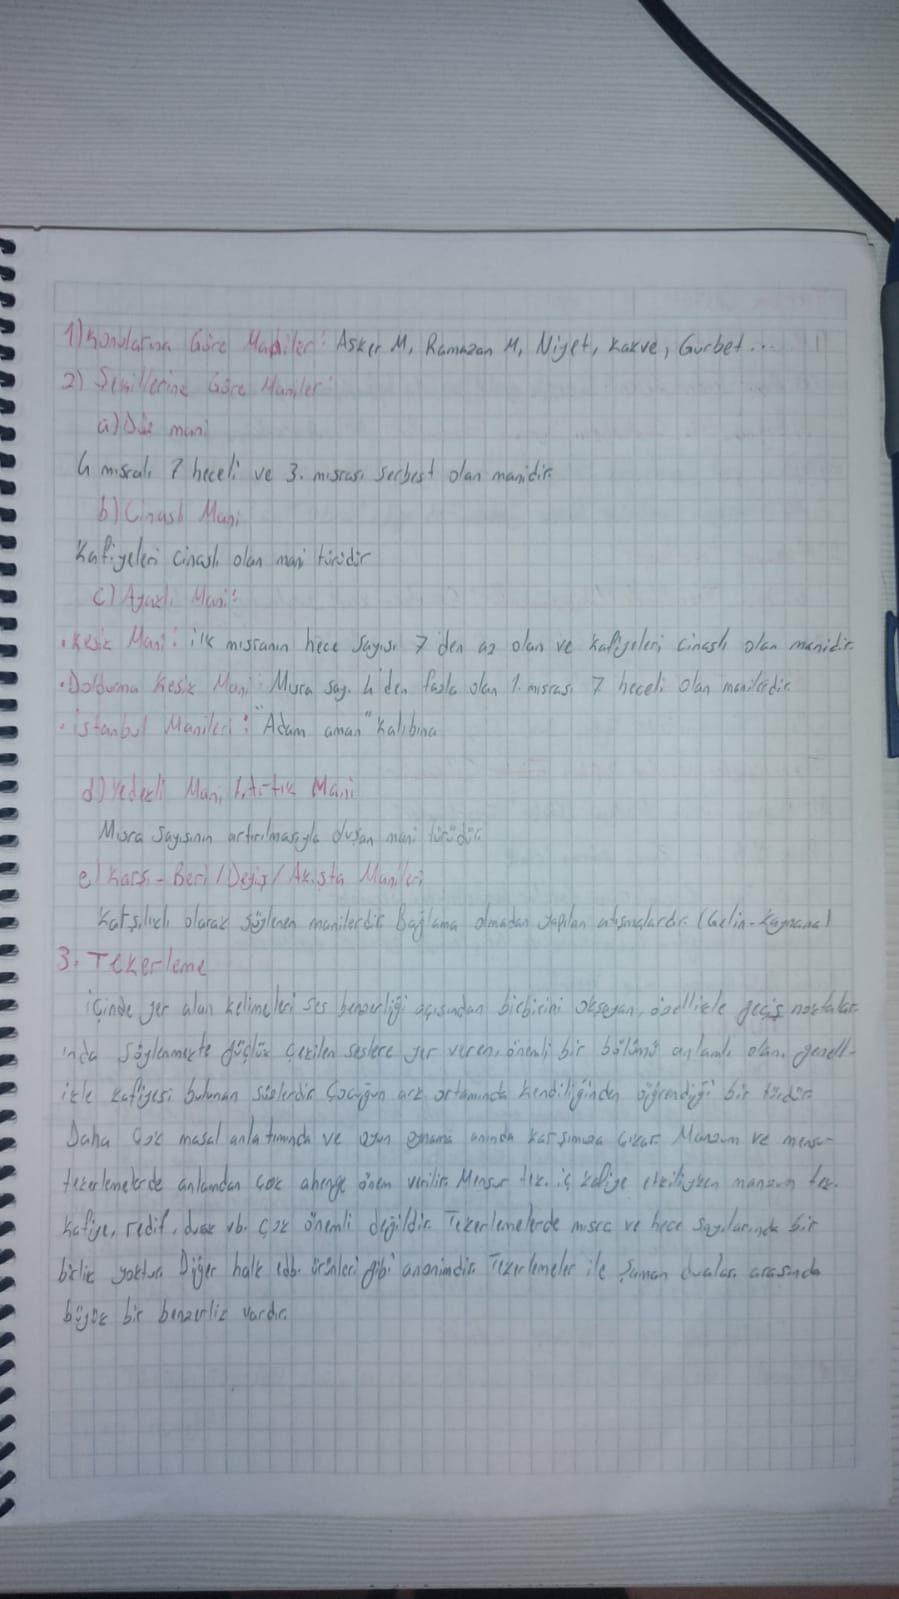 1) Konularına Göre Maniler: Asker M, Ramazan M, Niyet, Kahve, Gurbet...
2) Şekillerine Göre Maniler:
a) Düz mani
4 mısralı 7 heceli ve 3. mısrası serbest olan manidir.
b) Cinaslı Mani
Kafiyeleri cinaslı olan mani türüdür
c) Ayaklı Mani:
• Kesik Mani: ilk mısranın hece sayısı 7 den az olan ve kafiyeleri cinaslı olan manidir.
• Doldurma Kesik Mani: Mısra say. 4'den fazla olan 1. mısrası 7 heceli olan manilerdir.
• İstanbul Manileri: "Adam aman" kalıbına
d) Yedekli Mani / Artık Mani
Mısra sayısının artırılmasıyla oluşan mani türüdür.
e) Karşı-Beri / Deyiş / Akışta Manileri
Karşılıklı olarak söylenen manilerdir. Bağlama olmadan yapılan atışmalardır. (Gelin-Kaynana)
3. Tekerleme
İçinde yer alan kelimeleri ses benzerliği açısından birbirini okşayan, özellikle geçiş noktalar-
ında söylenmekte güçlük çekilen seslere yer veren, önemli bir bölümü anlamlı olan, genell-
ikle kafiyesi bulunan sözlerdir. Çocuğun ark ortamında kendiliğinden öğrendiği bir türdür.
Daha çok masal anlatımında ve oyun oynama anında karşımıza çıkar. Manzum ve mensur
tekerlemelerde anlamdan çok ahenge önem verilir. Mensur tek. iç kafiye etkiliyken manzum tek.
kafiye, redif, durak vb. çok önemli değildir. Tekerlemelerde mısra ve hece sayılarında bir
birlik yoktur. Diğer halk edb. ürünleri gibi anonimdir. Tekerlemeler ile Şaman duaları arasında
büyük bir benzerlik vardır.